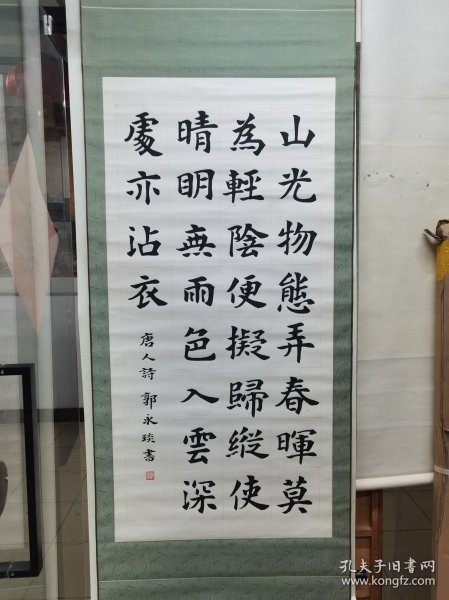 山光物態弄春暉莫
為輕陰便擬歸縱使
晴明無雨色入雲深
處亦沾衣
唐人詩 郭永琰書
孔夫子旧书网
www.kongfz.com